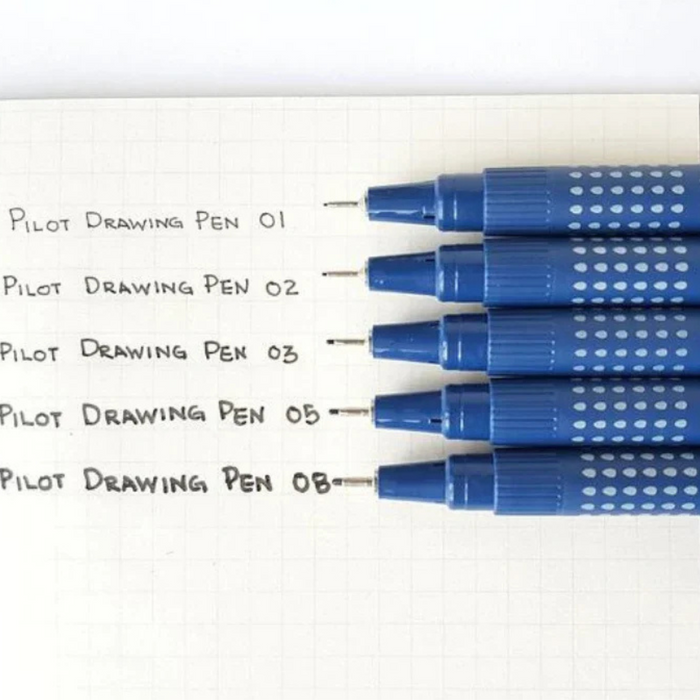 PILOT DRAWING PEN 01
PILOT DRAWING PEN 02
PILOT DRAWING PEN 03
PILOT DRAWING PEN 05
PILOT DRAWING PEN 08